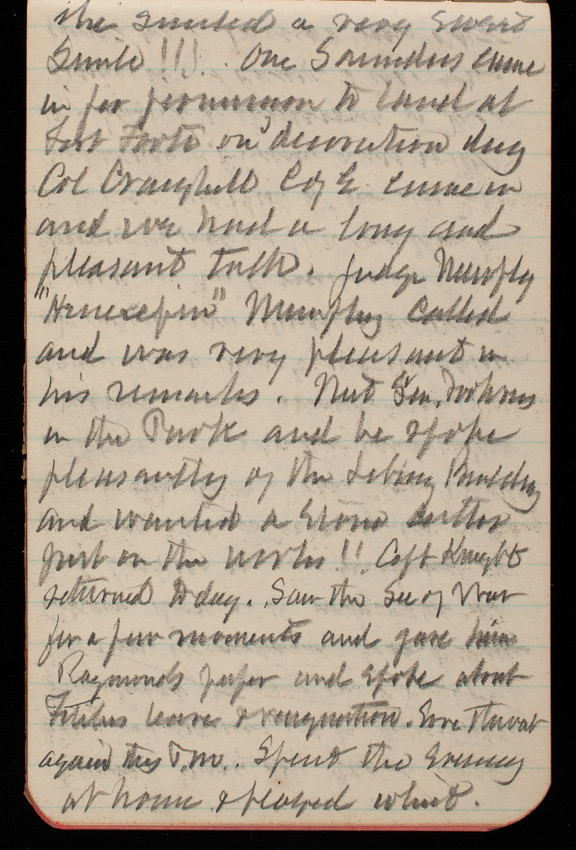 she smiled a very sweet
smile !!). One Saunders came
in for permission to land at
Fort Foote on decoration day
Col Craighill C of E. came in
and we had a long and
pleasant talk. Judge Murphy
" " Murphy called
and was very pleasant in
his remarks. Met Gen.
in the Park and he spoke
pleasantly of the Library Building
and wanted a stone cutter
put on the works!! Capt Knight
returned today. Saw the Sec of War
for a few moments and gave him
Raymonds paper and spoke about
leave & resignation. Sore throat
again this P.M. Spent the Evening
at home & played whist.